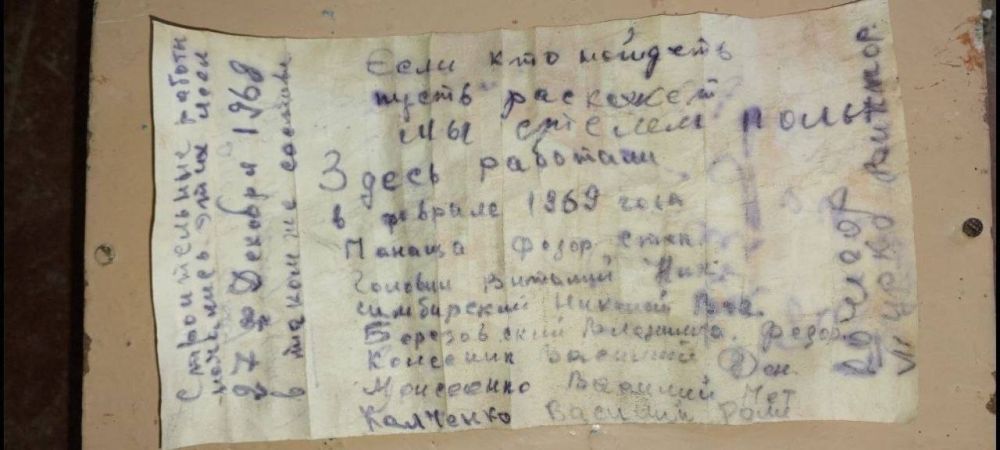 Если кто найдеть
пусть раскажет
Мы стелем полы
Здесь работали
в феврале 1969 года
Панаща Федор Степ.
Головин Виталий
Симбирский Николай
Борезовский Володимир. Федор.
Василий
Моисеенко Василий
Калченко Василий
Строительные работы
начались этим меся
27 го Декабря 1968
в таком же составе
Бригадир
Цурко Виктор.